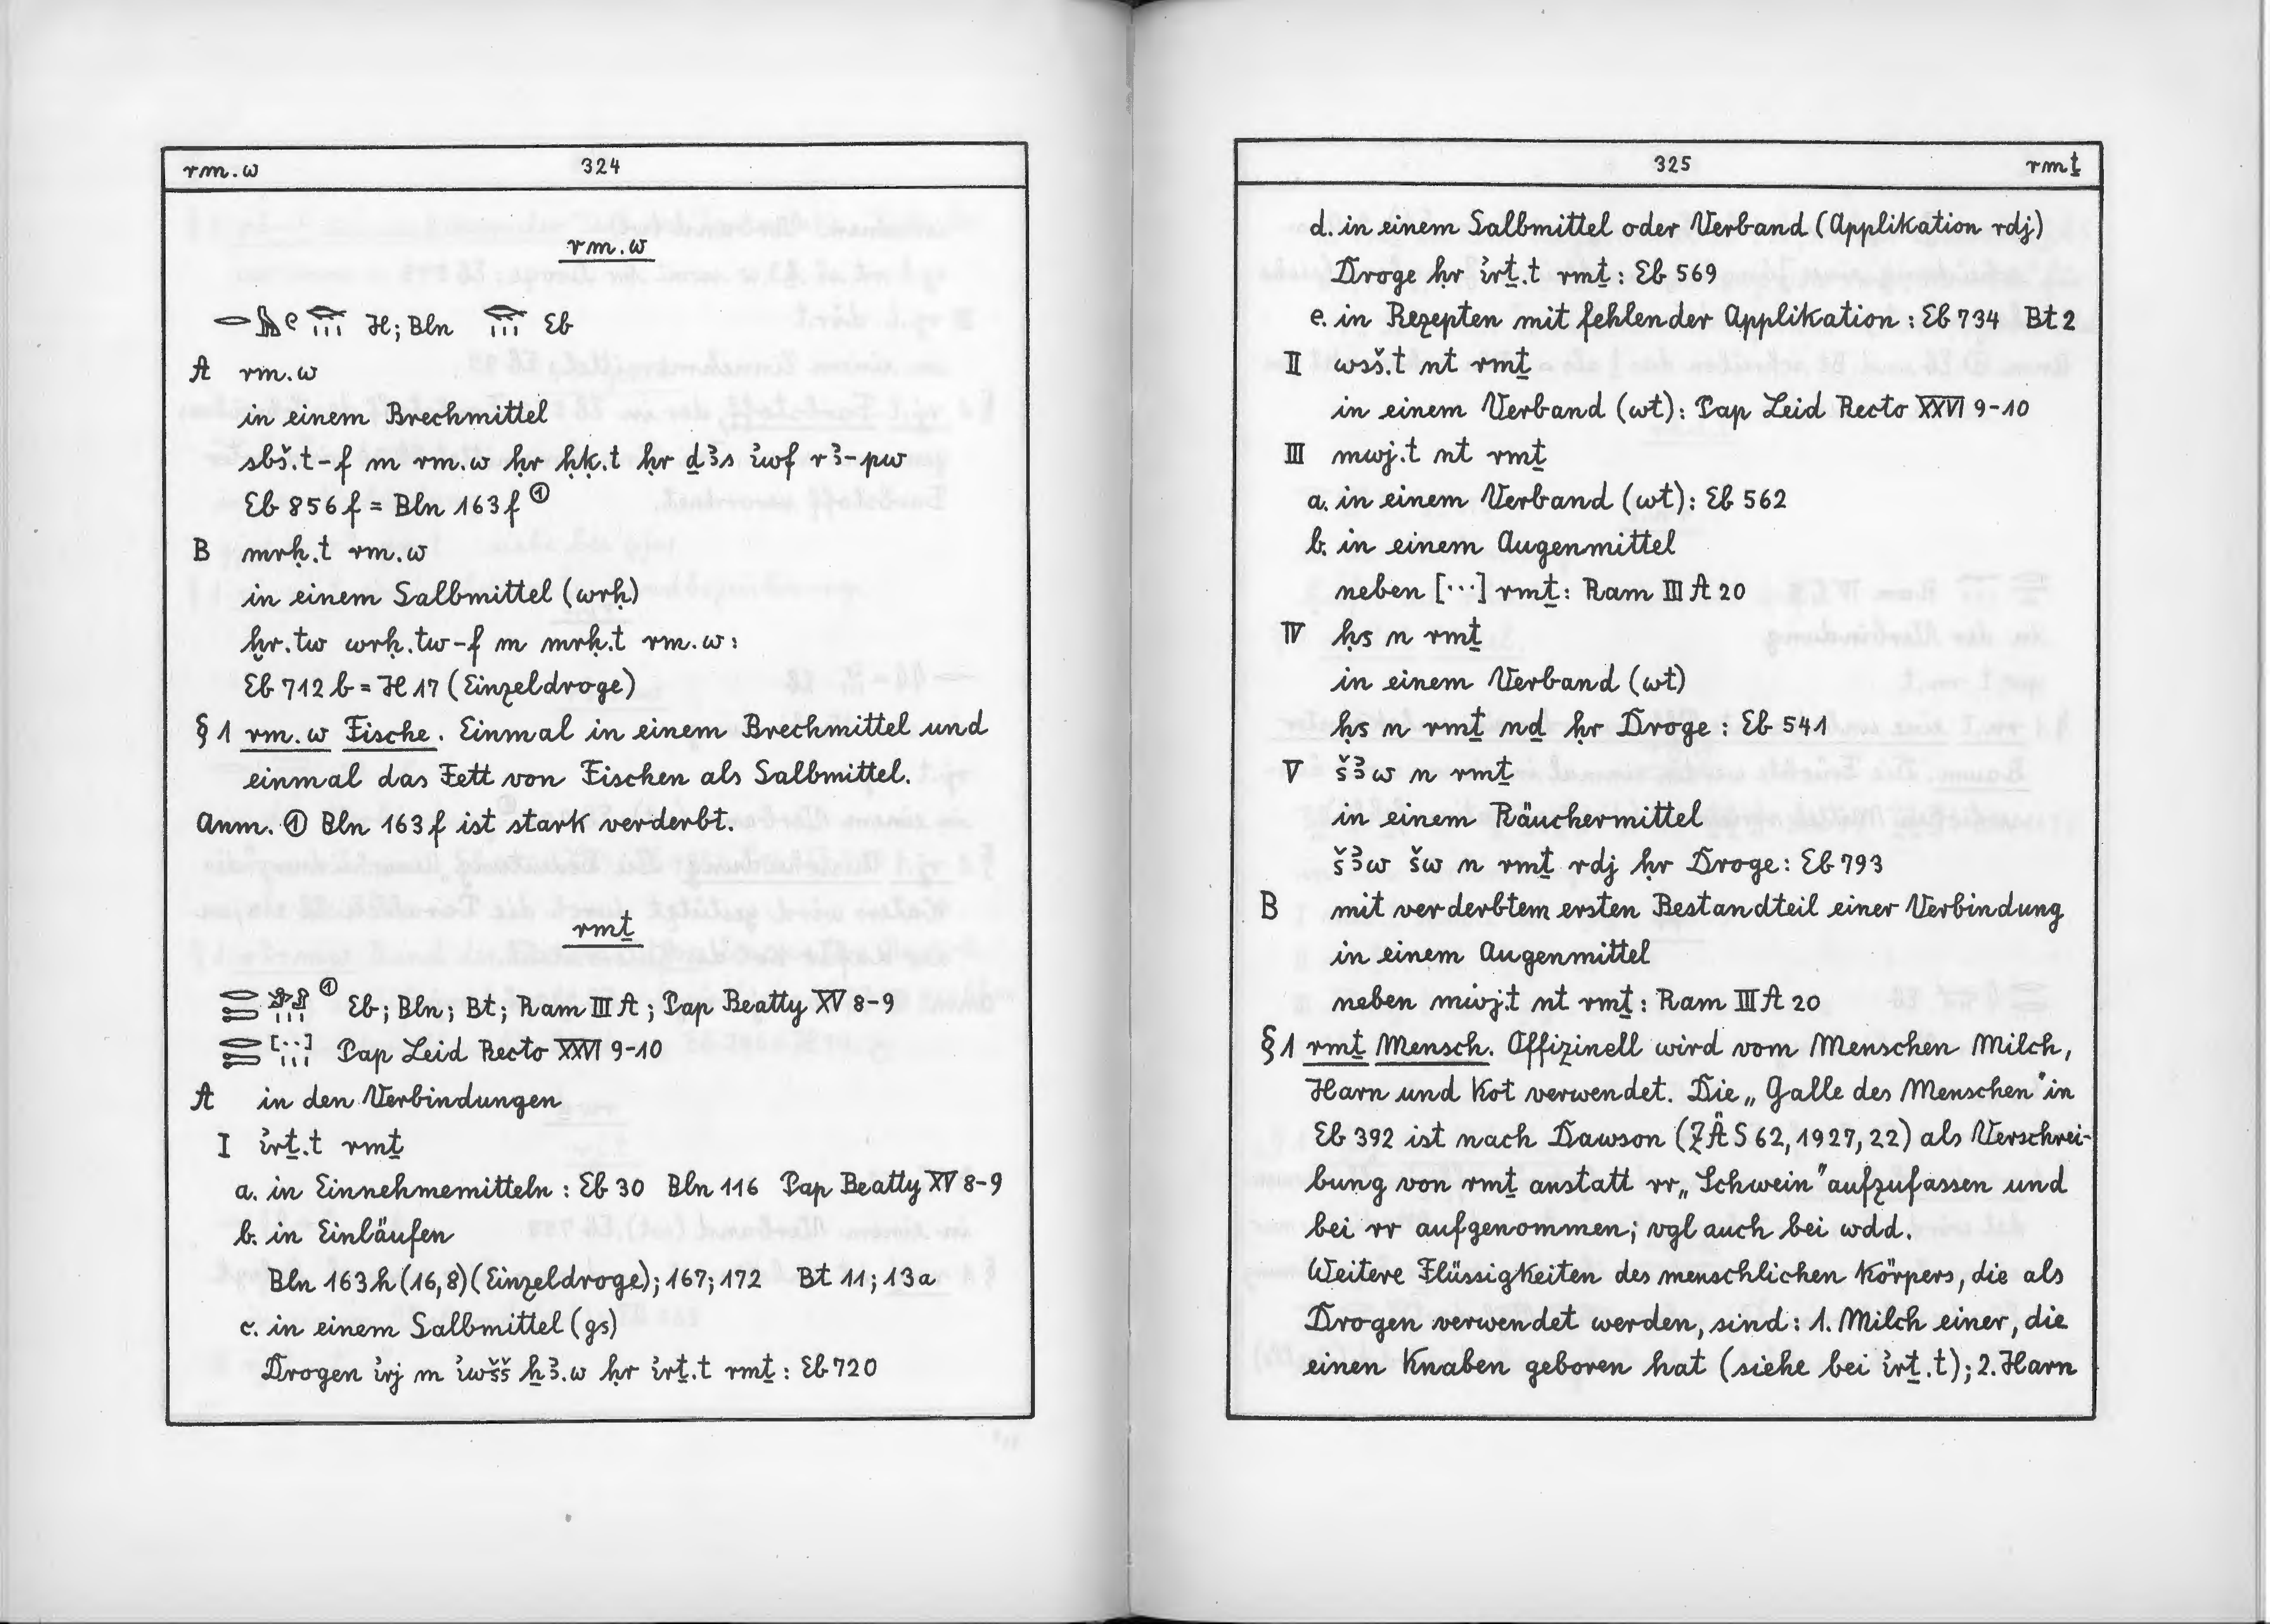 rm.w 324
rm.w
H; Bln Eb
A rm.w
in einem Brechmittel
sbš.t-f m rm.w ḥr ḥḳ.t ḥr ḏꜣs i҆wf rꜣ-pw
Eb 856 f = Bln 163 f ①
B mrḥ.t rm.w
in einem Salbmittel (wrḥ)
ḫr.tw wrḥ.tw-f m mrḥ.t rm.w:
Eb 712 b = H 17 (Einzeldroge)
§ 1 rm.w Fische. Einmal in einem Brechmittel und
einmal das Fett von Fischen als Salbmittel.
Anm. ① Bln 163 f ist stark verderbt.
rmṯ
① Eb; Bln; Bt; Ram III A; Pap Beatty XV 8-9
[..] Pap Leid Recto XXVI 9-10
A in den Verbindungen
I i҆rṯ.t rmṯ
a. in Einnehmemitteln: Eb 30 Bln 116 Pap Beatty XV 8-9
b. in Einläufen
Bln 163 h (16,8) (Einzeldroge); 167; 172 Bt 11; 13a
c. in einem Salbmittel (gs)
Drogen i҆rj m i҆wšš ẖꜣ.w ḥr i҆rṯ.t rmṯ: Eb 720
325 rmṯ
d. in einem Salbmittel oder Verband (Applikation rdj)
Droge ḥr i҆rṯ.t rmṯ: Eb 569
e. in Rezepten mit fehlender Applikation: Eb 734 Bt 2
II wsš.t nt rmṯ
in einem Verband (wt): Pap Leid Recto XXVI 9-10
III mwj.t nt rmṯ
a. in einem Verband (wt): Eb 562
b. in einem Augenmittel
neben [...] rmṯ: Ram III A 20
IV ḥs n rmṯ
in einem Verband (wt)
ḥs n rmṯ nḏ ḥr Droge: Eb 541
V šꜣw n rmṯ
in einem Räuchermittel
šꜣw šw n rmṯ rdj ḥr Droge: Eb 793
B mit verderbtem ersten Bestandteil einer Verbindung
in einem Augenmittel
neben mwj.t nt rmṯ: Ram III A 20
§ 1 rmṯ Mensch. Offizinell wird vom Menschen Milch,
Harn und Kot verwendet. Die „Galle des Menschen" in
Eb 392 ist nach Dawson (ZÄS 62, 1927, 22) als Verschrei-
bung von rmṯ anstatt rr „Schwein" aufzufassen und
bei rr aufgenommen; vgl auch bei wdd.
Weitere Flüssigkeiten des menschlichen Körpers, die als
Drogen verwendet werden, sind: 1. Milch einer, die
einen Knaben geboren hat (siehe bei i҆rṯ.t); 2. Harn